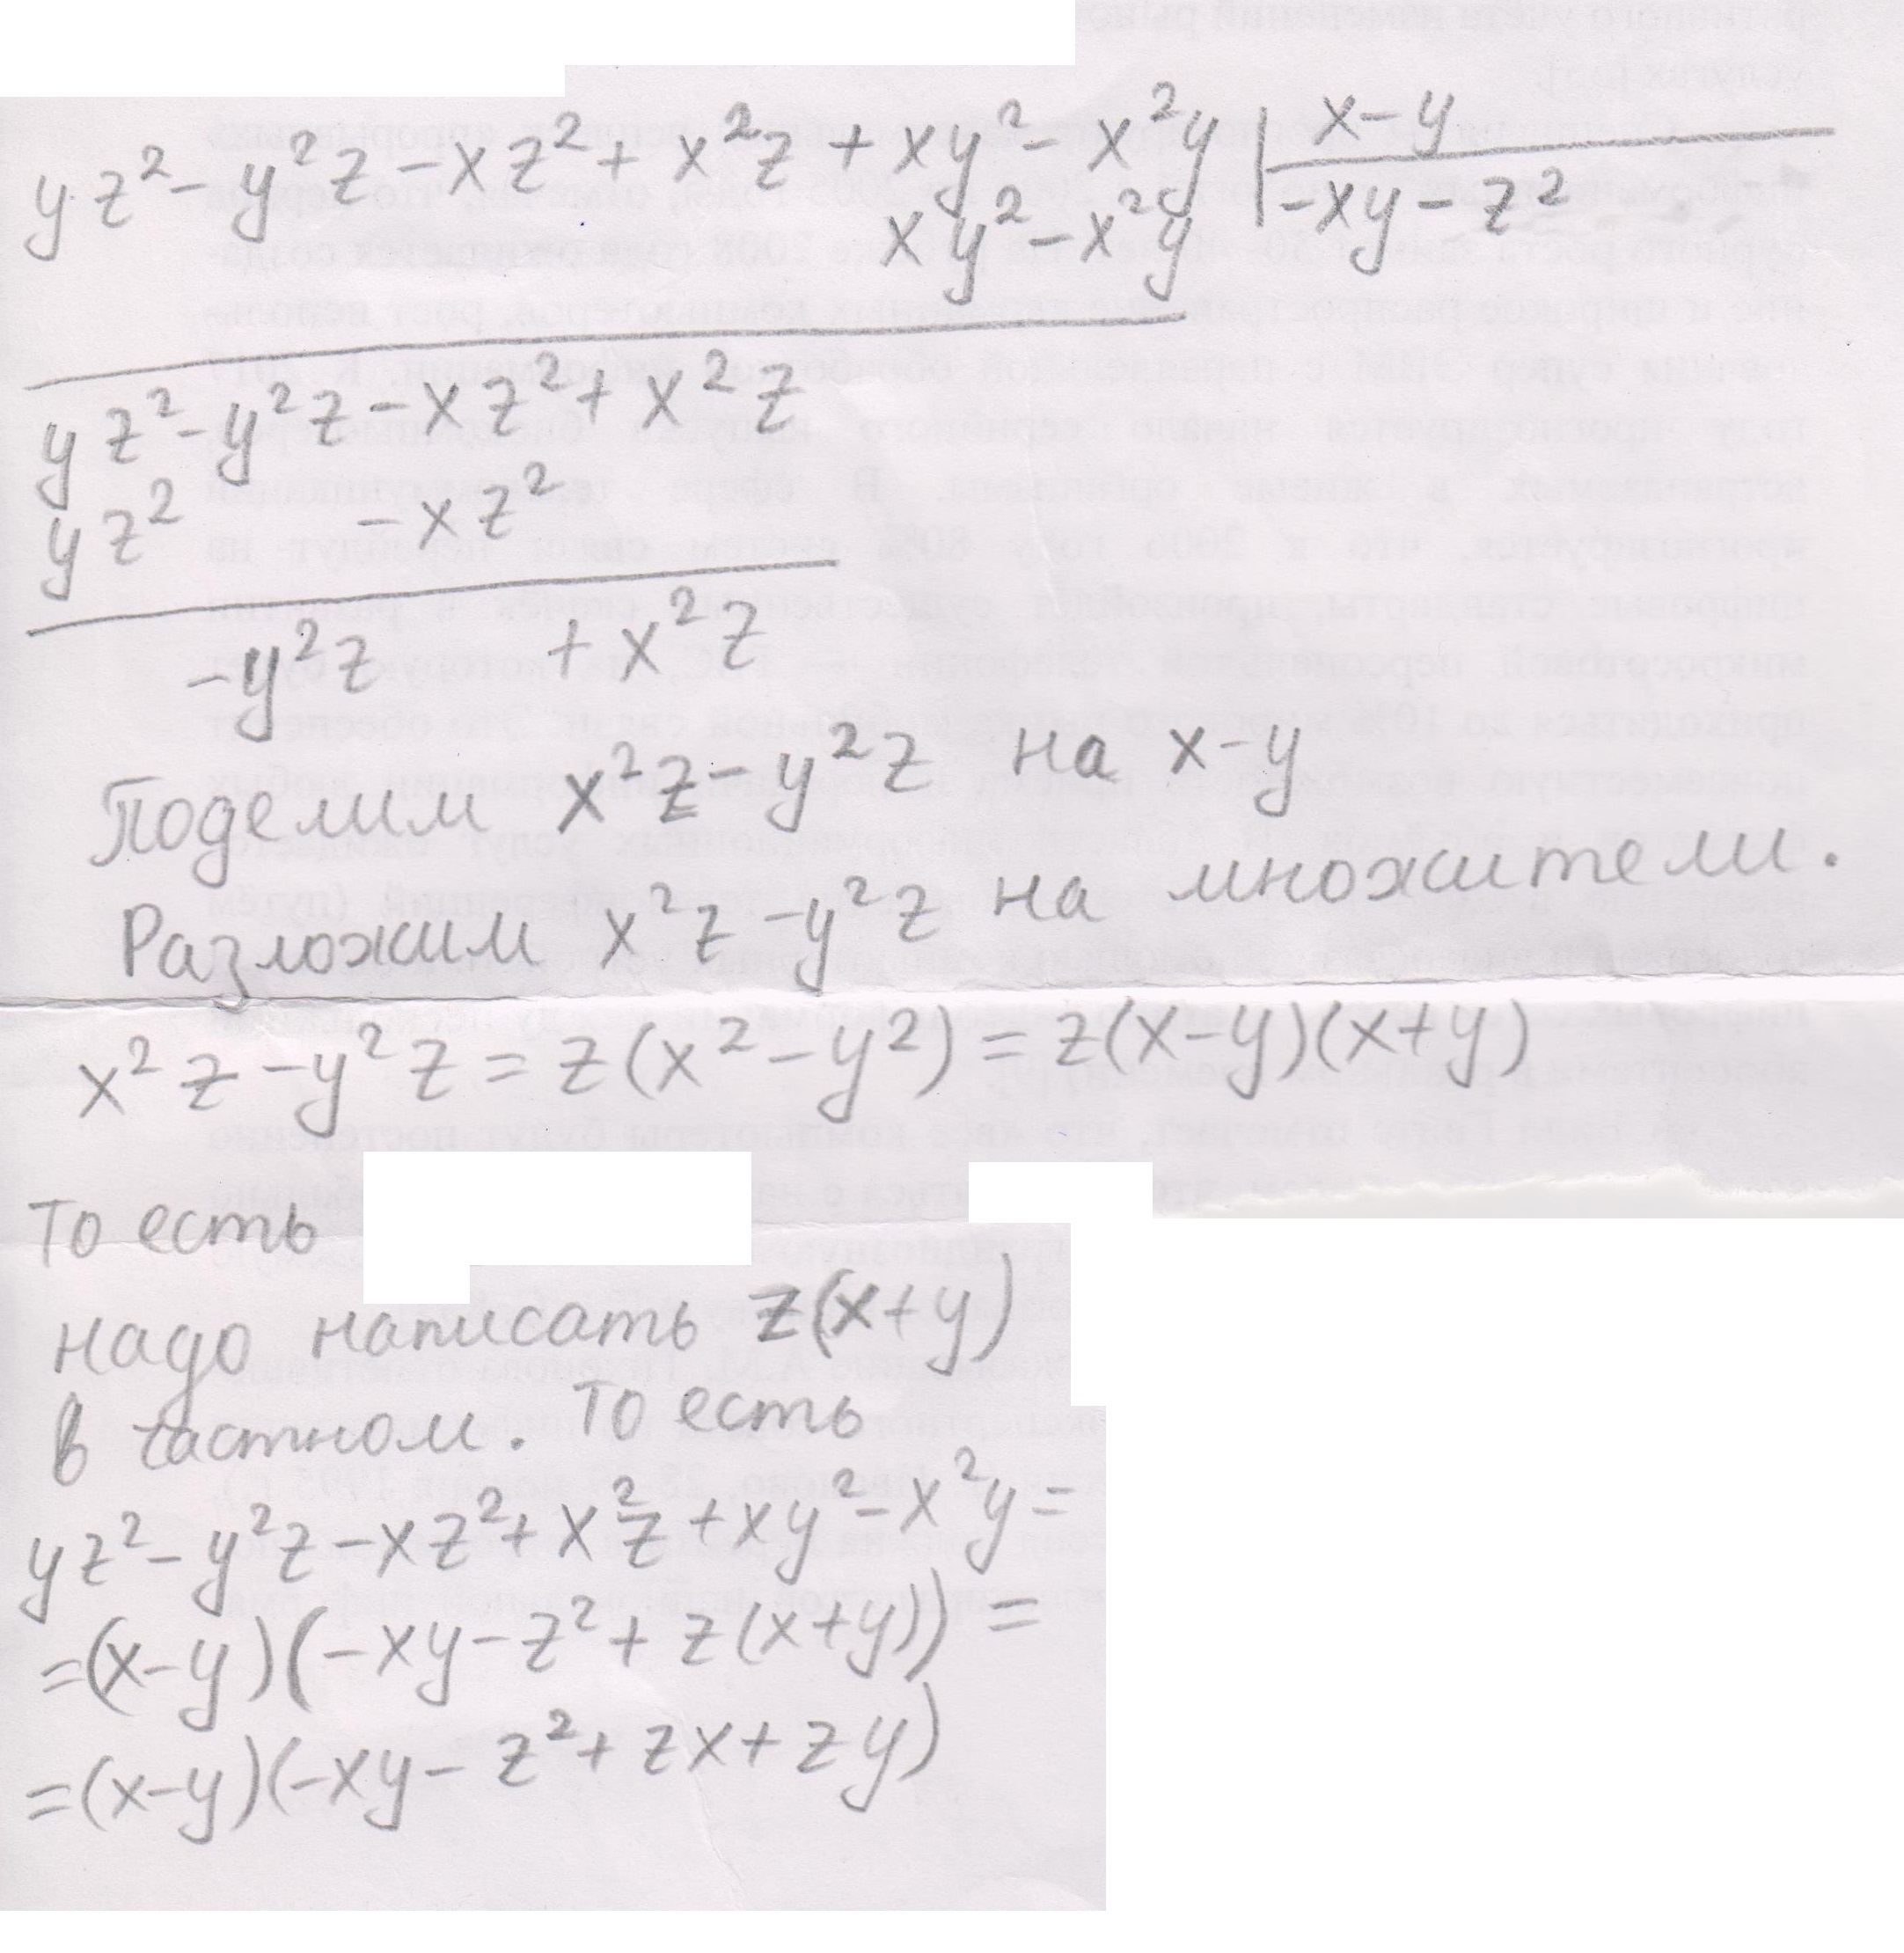 yz² - y²z - xz² + x²z + xy² - x²y | x-y
xy² - x²y | -xy - z²
yz² - y²z - xz² + x²z
yz² - xz²
-y²z + x²z
Поделим x²z - y²z на x-y
Разложим x²z - y²z на множители.
x²z - y²z = z(x² - y²) = z(x-y)(x+y)
То есть
надо написать z(x+y)
в частном. То есть
yz² - y²z - xz² + x²z + xy² - x²y =
=(x-y)(-xy - z² + z(x+y)) =
=(x-y)(-xy - z² + zx + zy)